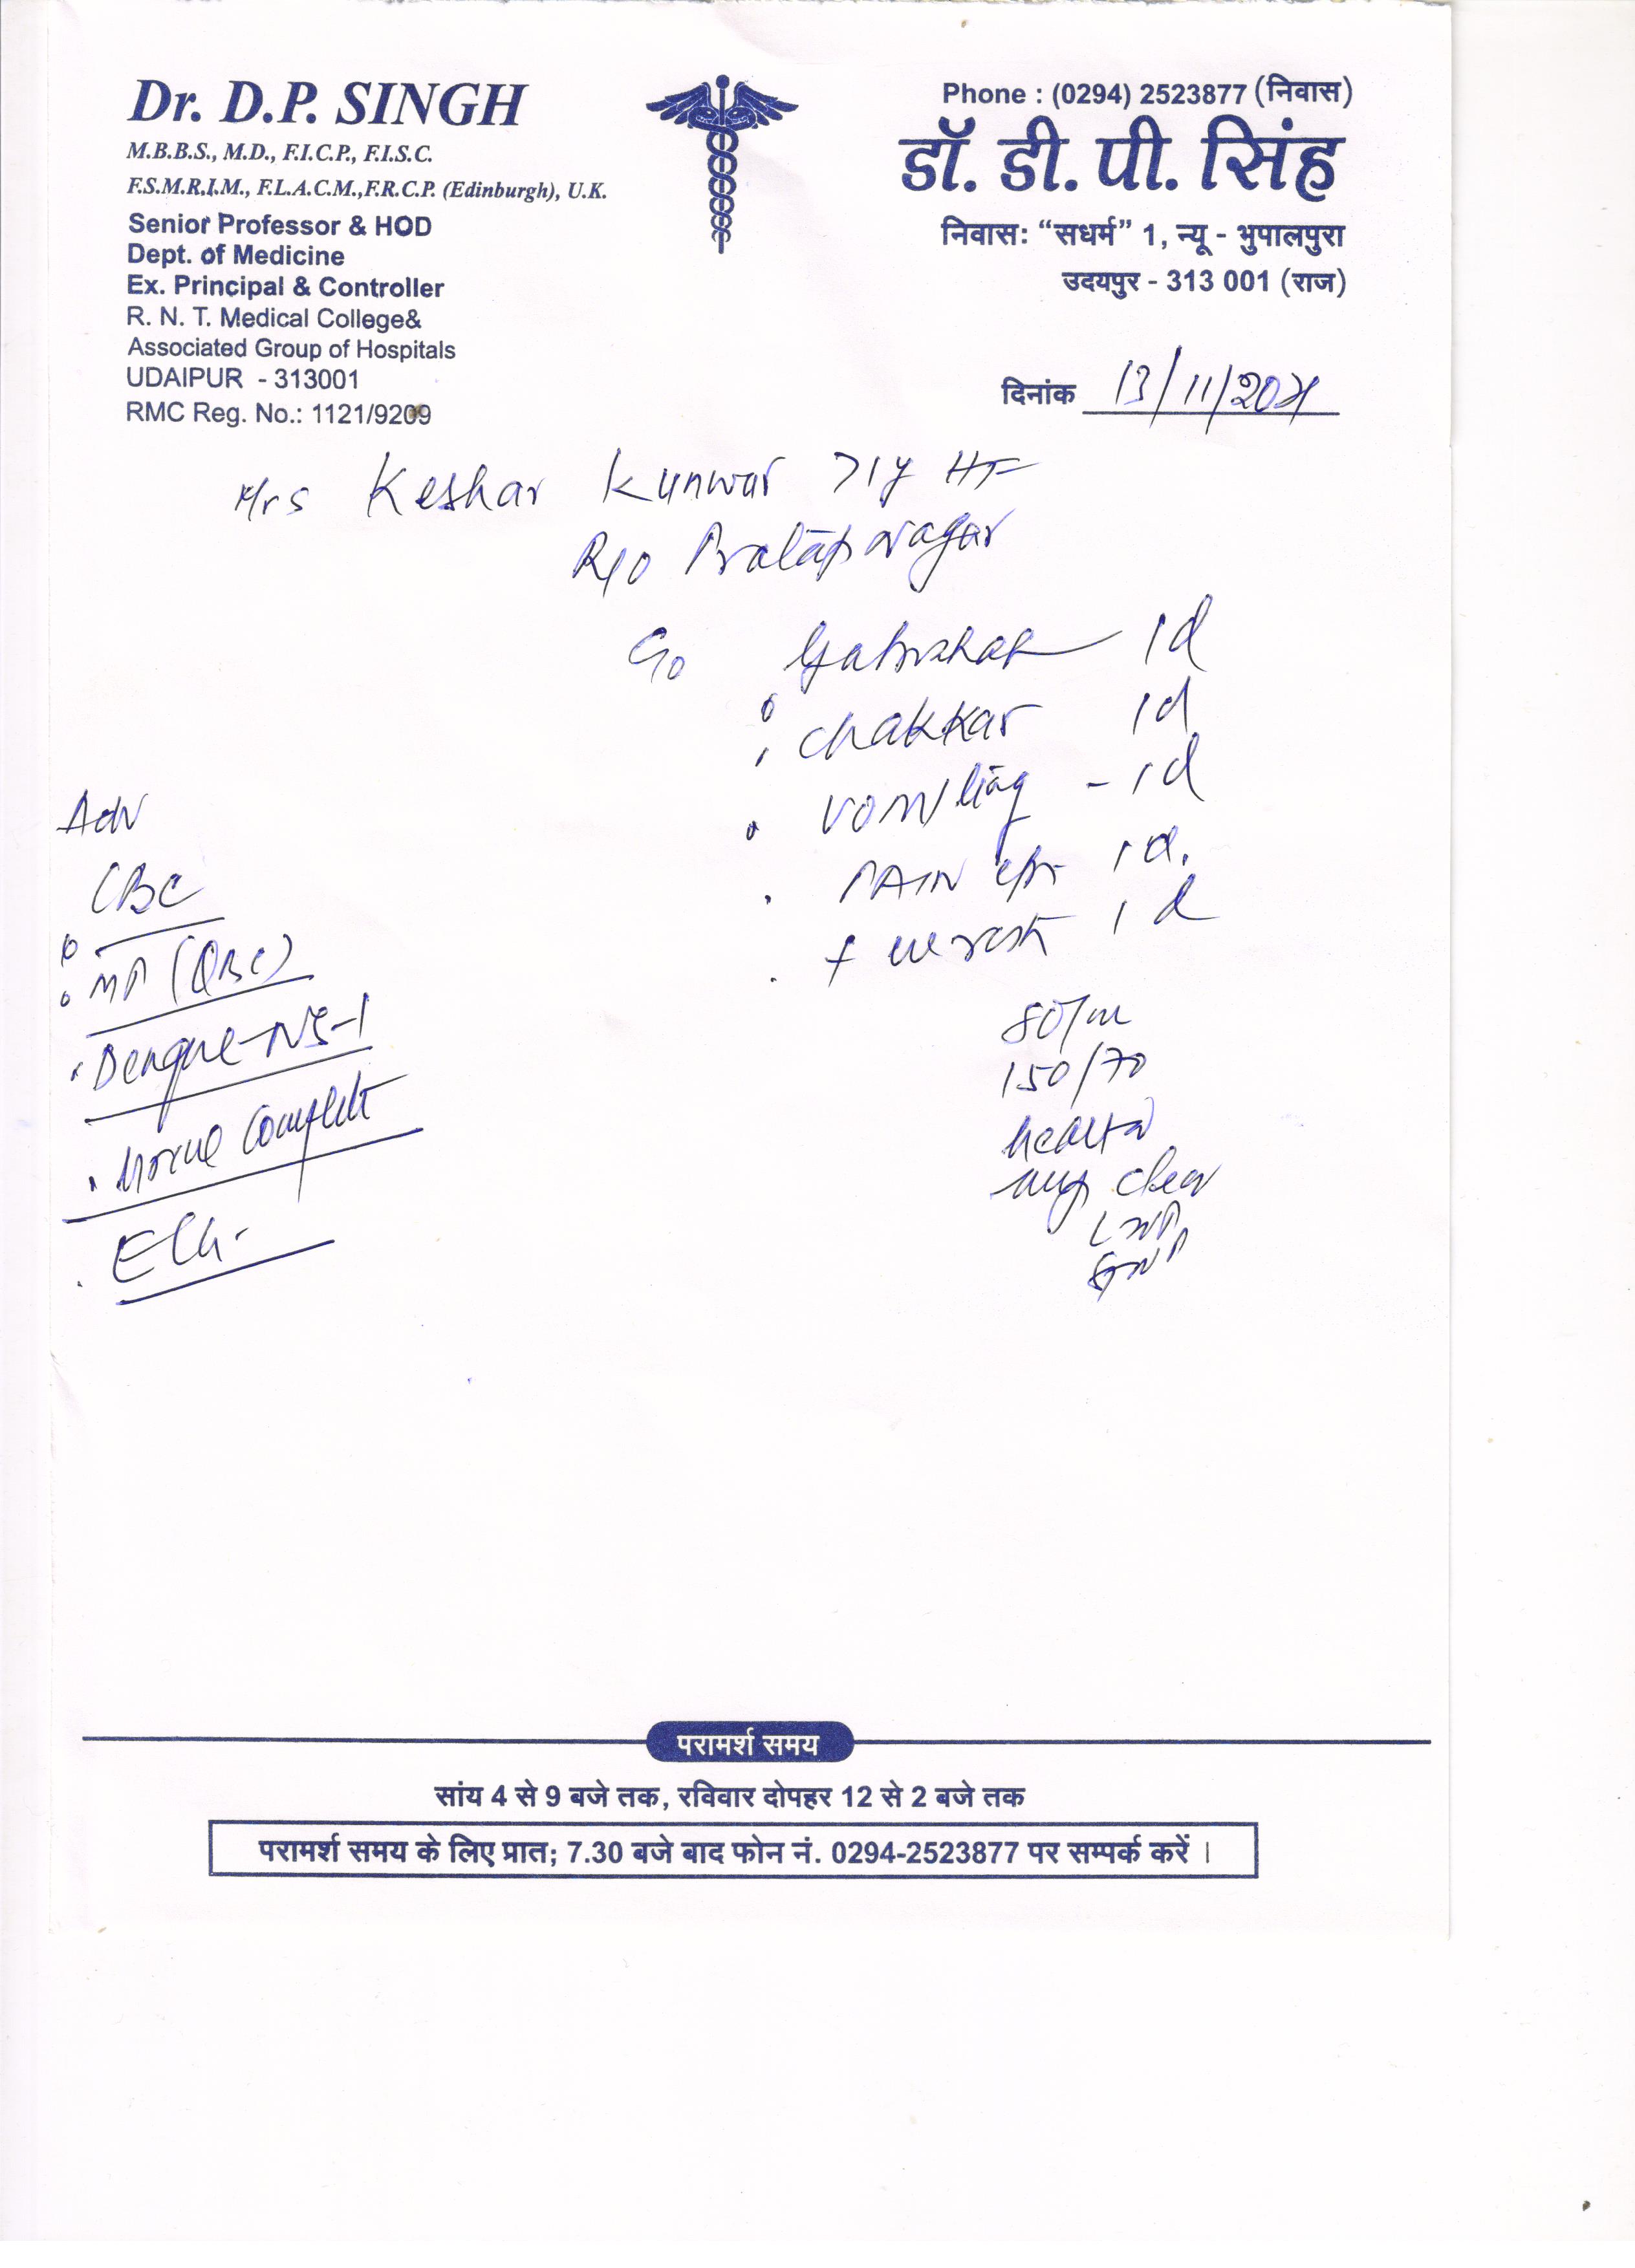 Dr. D.P. SINGH
M.B.B.S., M.D., F.I.C.P., F.I.S.C.
F.S.M.R.I.M., F.L.A.C.M.,F.R.C.P. (Edinburgh), U.K.
Senior Professor & HOD
Dept. of Medicine
Ex. Principal & Controller
R. N. T. Medical College&
Associated Group of Hospitals
UDAIPUR - 313001
RMC Reg. No.: 1121/9209
Phone : (0294) 2523877 (निवास)
डॉ. डी. पी. सिंह
निवास: “सधर्म” 1, न्यू - भुपालपुरा
उदयपुर - 313 001 (राज)
दिनांक 13/11/2021
Mrs Keshar Kunwar 71y HF
R/o Pratapnagar
C/o Gabrahat 1d
chakkar 1d
vomiting - 1d
PAIN epi 1d.
1d
80/m
150/70
clear
Adv
CBC
MP (QBC)
Dengue-NS-1
Urine Complete
ECG.
परामर्श समय
सांय 4 से 9 बजे तक, रविवार दोपहर 12 से 2 बजे तक
परामर्श समय के लिए प्रात; 7.30 बजे बाद फोन नं. 0294-2523877 पर सम्पर्क करें ।